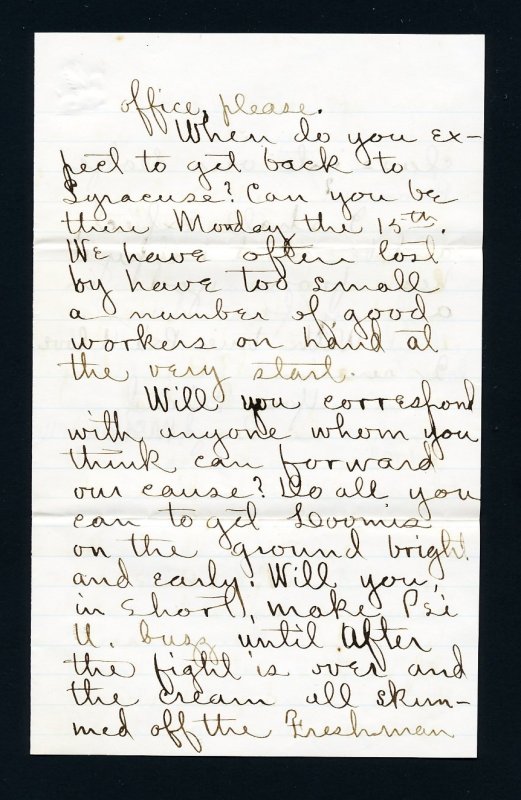 office, please.
When do you ex-
pect to get back to
Syracuse? Can you be
there Monday the 15th.
We have often lost
by have too small
a number of good
workers on hand at
the very start.
Will you correspond
with anyone whom you
think can forward
our cause? Do all you
can to get Loomis
on the ground bright
and early. Will you,
in short, make Psi
U. busy until after
the fight is over and
the cream all skim-
med off the Freshman